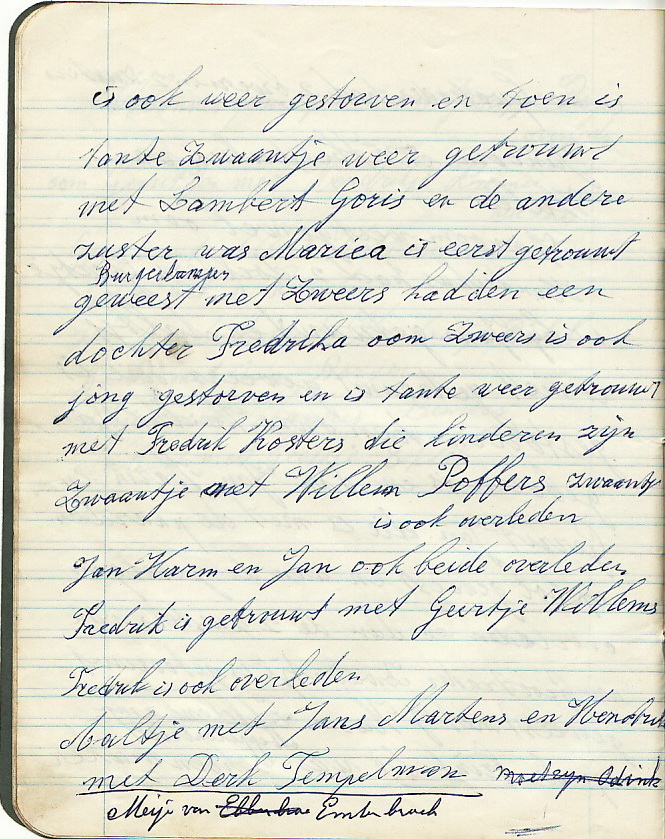 is ook weer gestorven en toen is
tante Zwaantje weer getrouwt
met Lambert Goris en de andere
zuster was Mariea is eerst getrouwt
Burgerkamper
geweest met Zweers hadden een
dochter Fredrika oom Zweers is ook
jong gestorven en is tante weer getrouwt
met Fredrik Kosters die kinderen zijn
Zwaantje met Willem Poffers Zwaantje
is ook overleden
Jan Harm en Jan ook beide overleden
Fredrik is getrouwt met Geertje Willems
Fredrik is ook overleden
Aaltje met Jans Martens en Hendrik
met Derk Tempelman moet zyn Odink
Meije van Ember broek